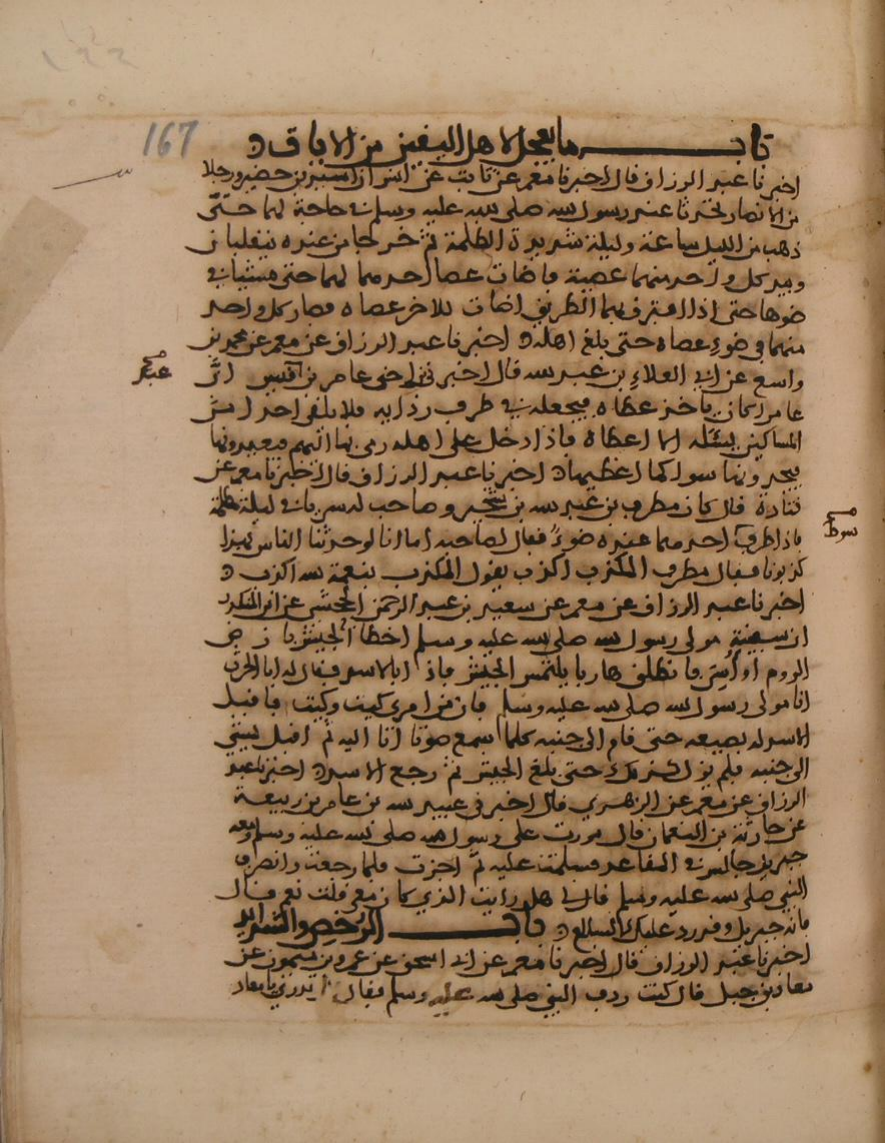 167
باب ما يعجل لاهل اليقين من الايات
اخبرنا عبد الرزاق قال اخبرنا معمر عن ثابت عن انس ان اسيد بن حضير ورجلا
من الانصار تحدثا عند رسول الله صلى الله عليه وسلم في حاجة لهما حتى
ذهب من الليل ساعة وليلة شديدة الظلمة ثم خرجا من عنده ينقلبان
وبيد كل واحد منهما عصية فاضات عصا احدهما لهما حتى مشيا في
ضوها حتى اذا افترق بهما الطريق اضات للاخر عصاه فصار كل واحد
منهما في ضوء عصاه حتى بلغ اهله اخبرنا عبد الرزاق عن معمر عن محمد بن
واسع عن ابي العلاء بن عبد الله قال اخبرني ابن اخي عامر بن قيس ان
عبد
عامرا كان ياخذ عطاه فيجعله في طرف ردايه فلا يلقى احدا من
المساكين يسئله الا اعطاه فاذا دخل على اهله رمى بها اليهم فيعدونها
فيجدونها سوا كما اعطيها اخبرنا عبد الرزاق قال اخبرنا معمر عن
قتادة قال كان مطرف بن عبد الله بن الشخير وصاحب له سريا في ليلة مظلمة
سوط
فاذا طرف احدهما عنده ضوء فقال لصاحبه اما انا لو حدثنا الناس بهذا
كذبونا فقال مطرف المكذب اكذب يقول المكذب بنعمة الله اكذب
اخبرنا عبد الرزاق عن معمر عن سعيد بن عبد الرحمن الجحشي عن ابن المنكدر
ان سفينة مولى رسول الله صلى الله عليه وسلم اخطا الجيش بارض
الروم او اسر فانطلق هاربا يلتمس الجيش فاذا بالاسد فقال له ابا الحرث
انا مولى رسول الله صلى الله عليه وسلم كان من امري كيت وكيت فاقبل
الاسد له بصبصه حتى قام الى جنبه كلما سمع صوتا اتا اليه ثم اقبل يمشي
الى جنبه فلم يزل كذلك حتى بلغ الجيش ثم رجع الاسد اخبرنا عبد
الرزاق عن معمر عن الزهري قال اخبرني عبد الله بن عامر بن ربيعة
عن حارثة بن النعمان قال مررت على رسول الله صلى الله عليه وسلم ومعه
جبريل جالس في المقاعد فسلمت عليه ثم اجزت فلما رجعت وانصرف
النبي صلى الله عليه وسلم قال لي هل رايت الذي كان معي قلت نعم قال
فانه جبريل وقد رد عليك السلام باب الرخص والشدايد
اخبرنا عبد الرزاق قال اخبرنا معمر عن ابي اسحق عن عمرو بن ميمون عن
معاذ بن جبل قال كنت ردف النبي صلى الله عليه وسلم فقال اتدري يا معاذ